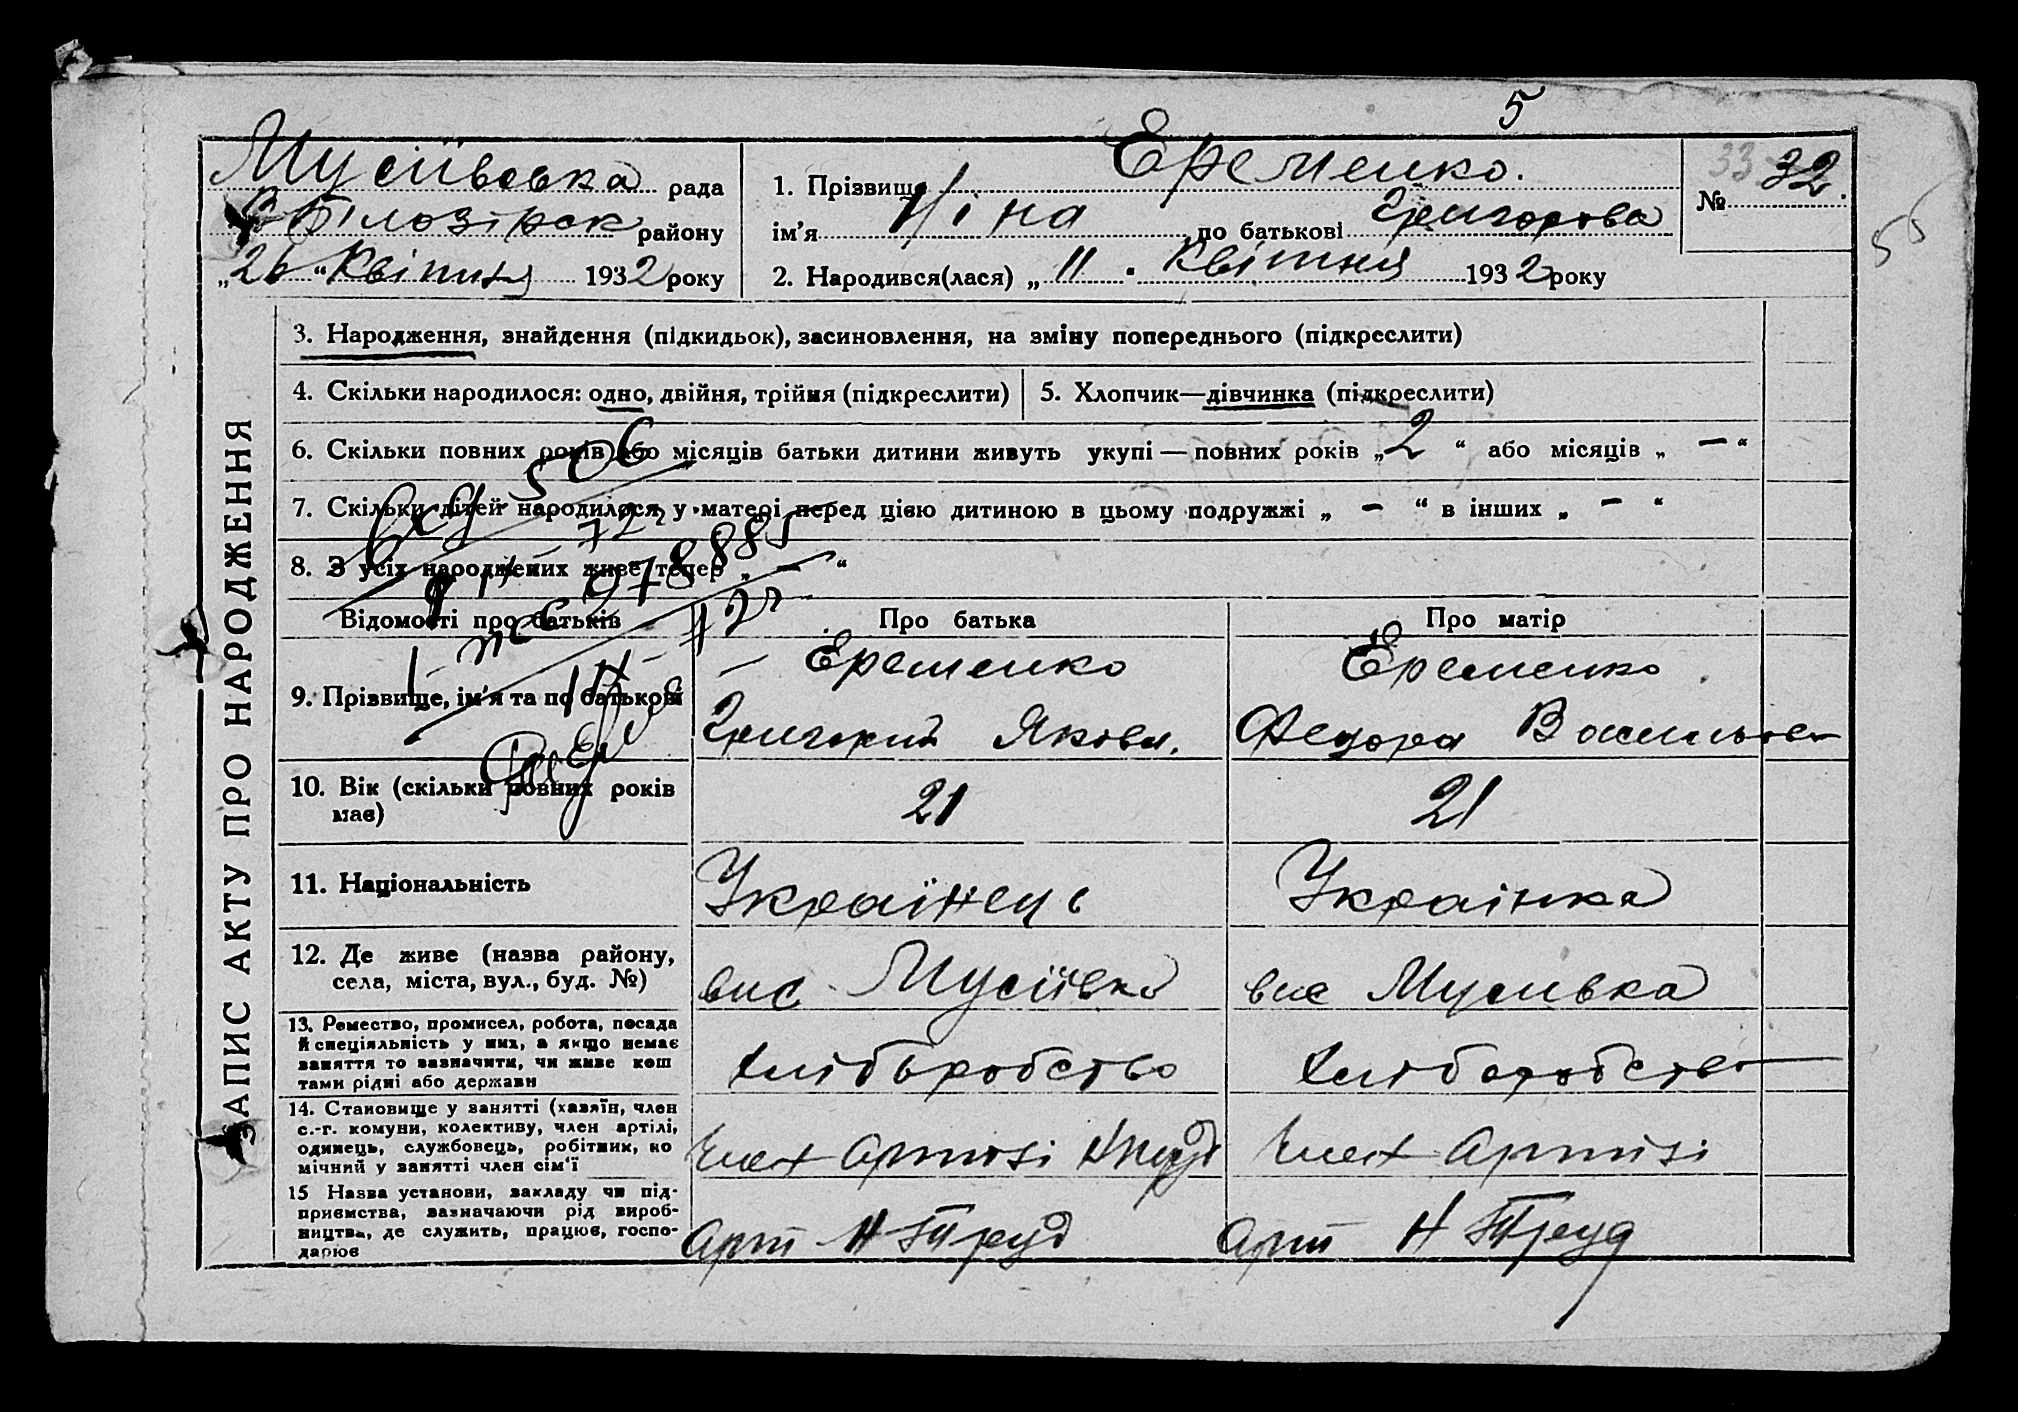 5
Мусіївська рада
В Білозірськ району
„26“ Квітня 1932 року
1. Прізвище Еременко.
ім'я Ніна по батькові Григорова
2. Народився(лася) „11“ Квітня 1932 року
33 № 32.
55
ЗАПИС АКТУ ПРО НАРОДЖЕННЯ
3. Народження, знайдення (підкидьок), засиновлення, на зміну попереднього (підкреслити)
4. Скільки народилося: одно, двійня, трійня (підкреслити)
5. Хлопчик—дівчинка (підкреслити)
6. Скільки повних років або місяців батьки дитини живуть укупі — повних років „2“ або місяців „—“
7. Скільки дітей народилося у матері перед цією дитиною в цьому подружжі „—“ в інших „—“
8. З усіх народжених живе тепер „—“
506
72
978885
Відомості про батьків
Про батька
Про матір
9. Прізвище, ім'я та по батькові
Еременко
Григорий Яковл.
Еременко
Федора Васильев
10. Вік (скільки повних років має)
21
21
11. Національність
Українець
Українка
12. Де живе (назва району, села, міста, вул., буд. №)
вис Мусіївка
вис Мусивка
13. Ремество, промисел, робота, посада й спеціяльність у них, а якщо немає заняття то зазначити, чи живе кош тами рідні або держави
Хліборобство
Хліборобство
14. Становище у занятті (хазяїн, член с.-г. комуни, колективу, член артілі, одинець, службовець, робітник, по мічний у занятті член сім'ї
член артілі НТруд
член артілі
15 Назва установи, закладу чи підприємства, зазначаючи рід виробництва, де служить, працює, господарює
Арт Н Труд
Арт Н Труд